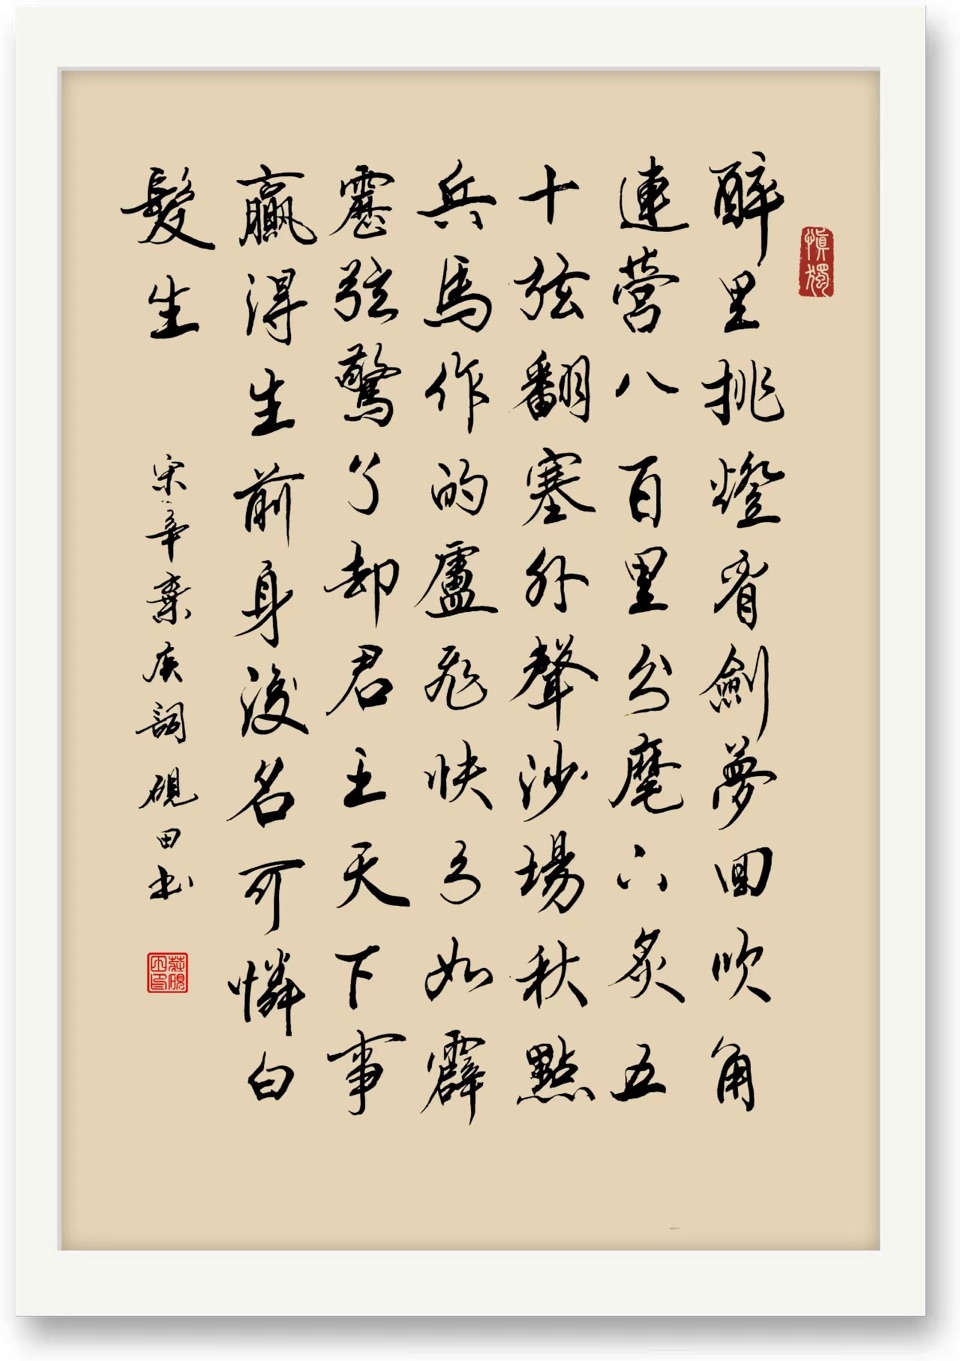 慎獨
醉里挑燈看劍夢回吹角
連營八百里分麾下炙五
十弦翻塞外聲沙場秋點
兵馬作的盧飛快弓如霹
靂弦驚了却君王天下事
贏得生前身後名可憐白
髮生
宋辛棄疾詞硯田书